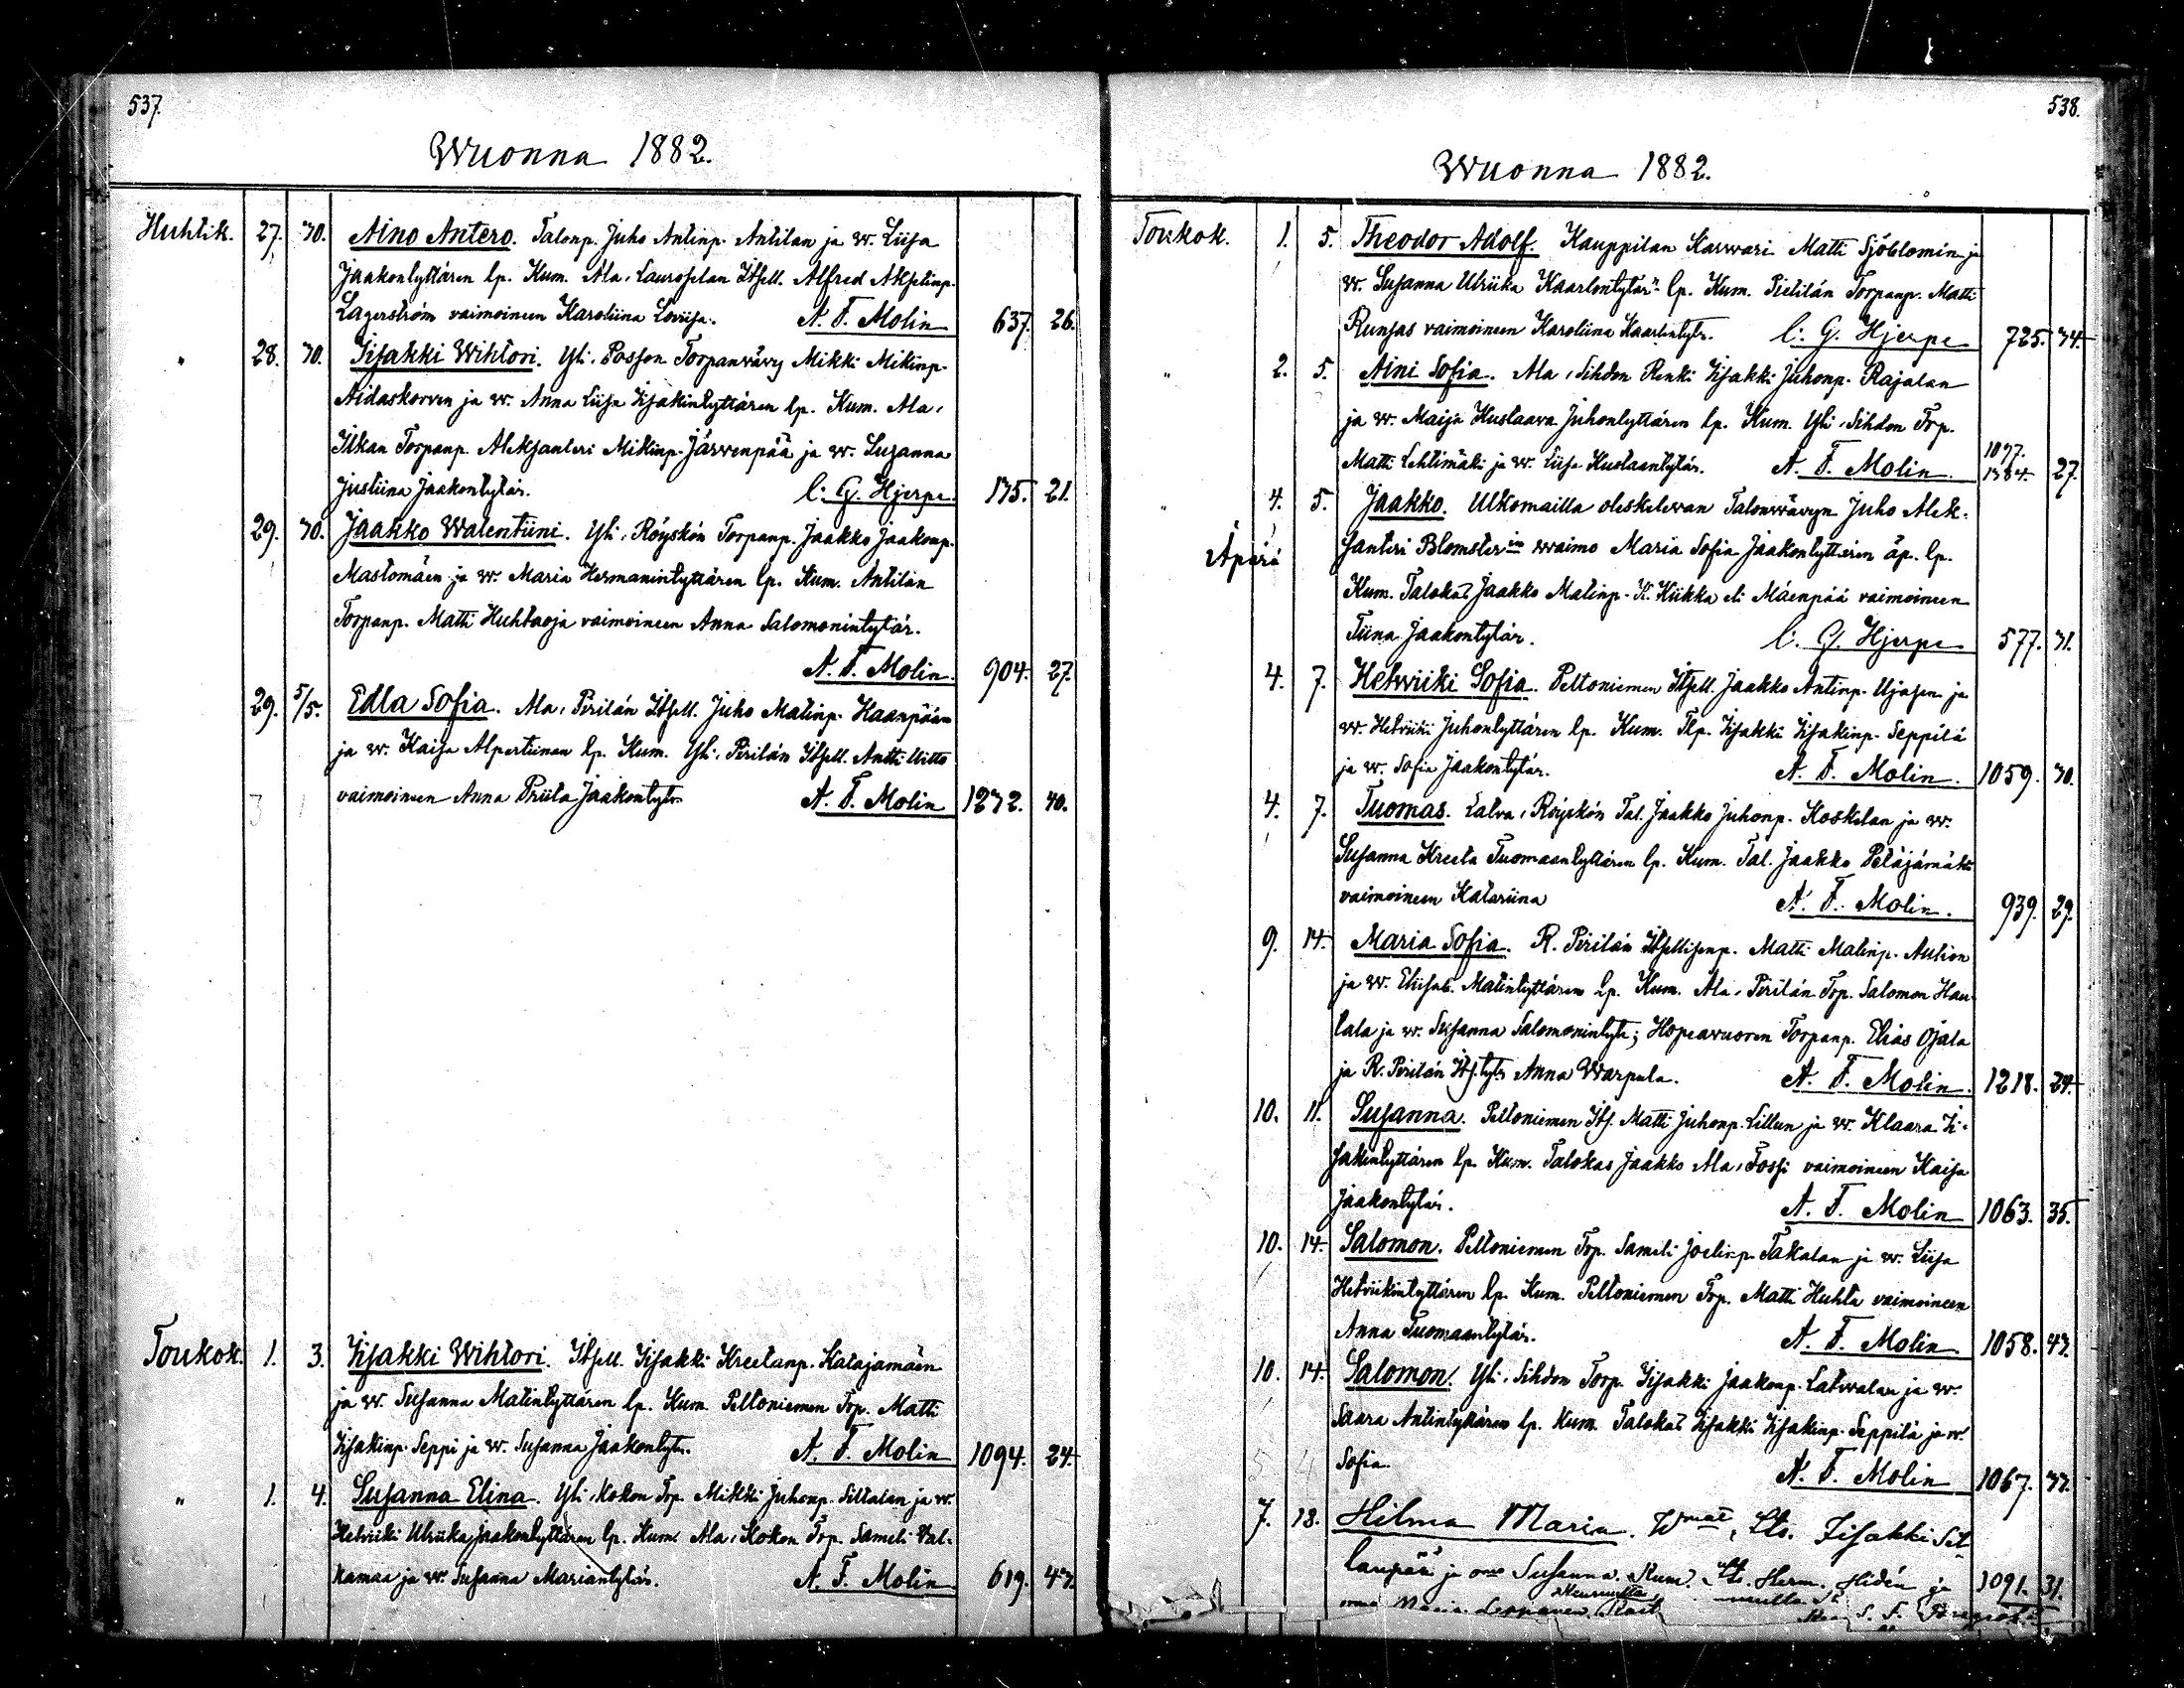 537.
Wuonna 1882.
Huhtik. 27. 30. Aino Antero. Talonp. Juho Antinp. Antilan ja w. Liisa
Jaakontyttären lp. Kum. Ala, Lauroselan Itsell. Alfred Akselinp.
Lagerström vaimoineen Karoliina Loviisa. A. F. Molin 637. 26.
" 28. 30. Iisakki Wihtori. Yli, Posson Torpanvävy Mikki Mikinp.
Aidaskorven ja w. Anna Liisa Iisakintyttären lp. Kum. Ala,
Ilkan Torpanp. Aleksanteri Mikinp. Järwenpää ja w. Susanna
Justiina Jaakontytär. C. G. Hjerpe. 175. 21.
29. 30. Jaakko Walentiini. Yli, Röyskön Torpanp. Jaakko Jaakonp.
Mastomäen ja w. Maria Hermanintyttären lp. Kum. Antilan
Torpanp. Matti Huhtaoja vaimoineen Anna Salomonintytär.
A. F. Molin. 904. 27.
29. 5/5. Edla Sofia. Ala, Pirilän Itsell. Juho Matinp. Haanpään
ja w. Kaisa Alpertiinan lp. Kum. Yli, Pirilän Itsell. Antti Uitto
vaimoineen Anna Priita Jaakontytr. A. F. Molin 1272. 40.
Toukok. 1. 3. Iisakki Wihtori. Itsell. Iisakki Kreetanp. Katajamäen
ja w. Susanna Matintyttären lp. Kum. Peltoniemen Trp. Matti
Iisakinp. Seppi ja w. Susanna Jaakontytr. A. F. Molin 1094. 24.
" 1. 4. Susanna Elina. Yli, Kokon Trp. Mikki Juhonp. Siltalan ja w.
Hetviiki Ulriika Jaakontyttären lp. Kum. Ala, Kokon Trp. Sameli Val-
kamaa ja w. Susanna Mariantytär. A. F. Molin 619. 43.
538.
Wuonna 1882.
Toukok. 1. 5. Theodor Adolf. Kauppilan Karwari Matti Sjöblomin ja
w. Susanna Ulriika Kaarlontytär lp. Kum. Pietilän Torpanp. Matti
Runsas vaimoineen Karoliina Kaarlontytr. C. G. Hjerpe 725. 34.
" 2. 5. Aini Sofia. Ala, Sihdon Renki Iisakki Juhonp. Rajalan
ja w. Maija Kustaava Juhontyttären lp. Kum. Yli, Sihdon Trp.
Matti Lehtimäki ja w. Liisa Kustaantytär. A. F. Molin. 1384. 27.
" 4. 5. Jaakko. Ulkomailla oleskelewan Talonwävyn Juho Alek-
Äpärä santeri Blomster in waimo Maria Sofia Jaakontyttären äp. lp.
Kum. Talokas Jaakko Matinp. K. Kiikka eli Mäenpää vaimoineen
Tiina Jaakontytär. C. G. Hjerpe 577. 31.
4. 7. Hetwiiki Sofia. Peltoniemen Itsell. Jaakko Antinp. Ujasen ja
w. Hetviiki Juhontyttären lp. Kum. Tlp. Iisakki Iisakinp. Seppilä
ja w. Sofia Jaakontytär. A. F. Molin. 1059. 30.
4. 7. Tuomas. Latva, Röyskön Tal. Jaakko Juhonp. Koskelan ja w.
Susanna Kreeta Tuomaantyttären lp. Kum. Tal. Jaakko Petäjämäki
vaimoineen Katariina A. F. Molin. 939. 29.
9. 14. Maria Sofia. R. Pirilän Itsellisenp. Matti Matinp. Aution
ja w. Eliisab. Matintyttären lp. Kum. Ala, Pirilän Trp. Salomon Hau-
tala ja w. Susanna Salomonintytr; Hopeavuoren Torpanp. Elias Ojala
ja R. Pirilän Its. tytr Anna Warpula. A. F. Molin. 1218. 24.
10. 11. Susanna. Peltoniemen Its. Matti Juhonp. Lillun ja w. Klaara Ii-
sakintyttären lp. Kum. Talokas Jaakko Ala, Fossi vaimoineen Kaisa
Jaakontytär. A. F. Molin 1063. 35.
10. 14. Salomon. Peltoniemen Trp. Sameli Joelinp. Takalan ja w. Liisa
Hetviikintyttären lp. Kum. Peltoniemen Trp. Matti Huhta vaimoineen
Anna Tuomaantytär. A. F. Molin 1058. 43.
10. 14. Salomon. Yli, Sihdon Torp. Iisakki Jaakonp. Latwalan ja w.
Saara Antintyttären lp. Kum. Talokas Iisakki Iisakinp. Seppilä ja w.
Sofia. A. F. Molin 1067. 33.
7. 18. Hilma Maria. Iisakki Sil-
Susanna. Kum. Herm. Hidén ja 1091. 31.
Maria